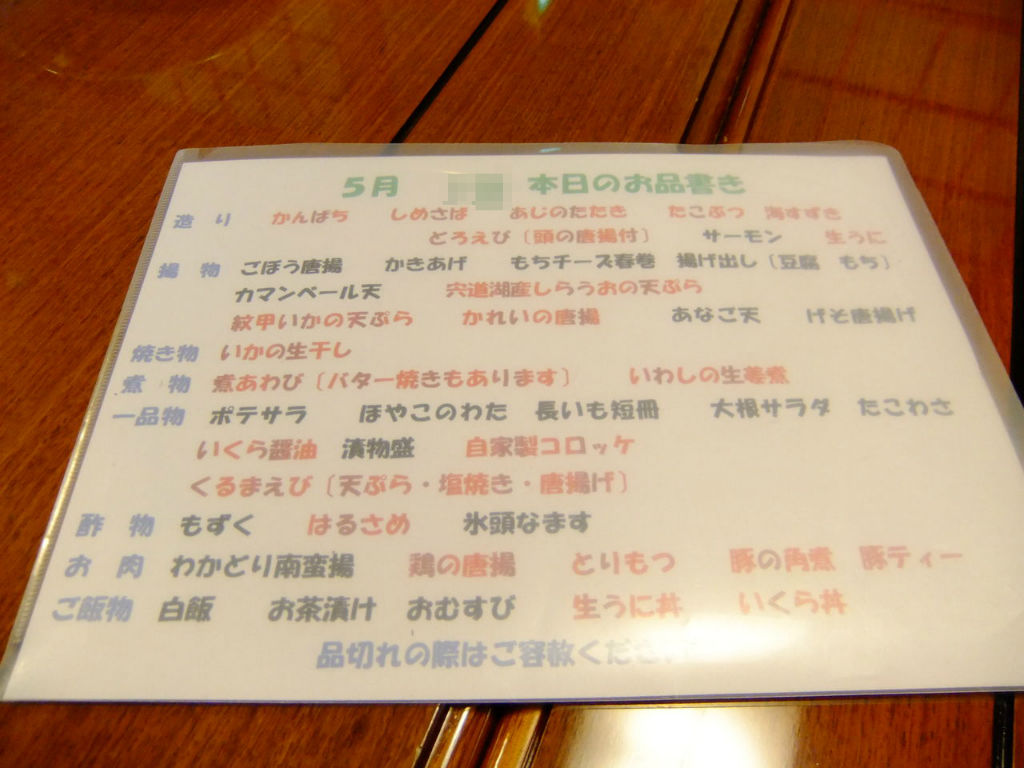 5月 本日のお品書き
造り かんぱち しめさば あじのたたき たこぶつ 海すずき
とろえび〔頭の唐揚付〕 サーモン 生うに
揚物 ごぼう唐揚 かきあげ もちチーズ春巻 揚げ出し〔豆腐 もち〕
カマンベール天 宍道湖産しらうおの天ぷら
紋甲いかの天ぷら かれいの唐揚 あなご天 げそ唐揚げ
焼き物 いかの生干し
煮物 煮あわび〔バター焼きもあります〕 いわしの生姜煮
一品物 ポテサラ ほやこのわた 長いも短冊 大根サラダ たこわさ
いくら醤油 漬物盛 自家製コロッケ
くるまえび〔天ぷら・塩焼き・唐揚げ〕
酢物 もずく はるさめ 氷頭なます
お肉 わかどり南蛮揚 鶏の唐揚 とりもつ 豚の角煮 豚ティー
ご飯物 白飯 お茶漬け おむすび 生うに丼 いくら丼
品切れの際はご容赦くださ